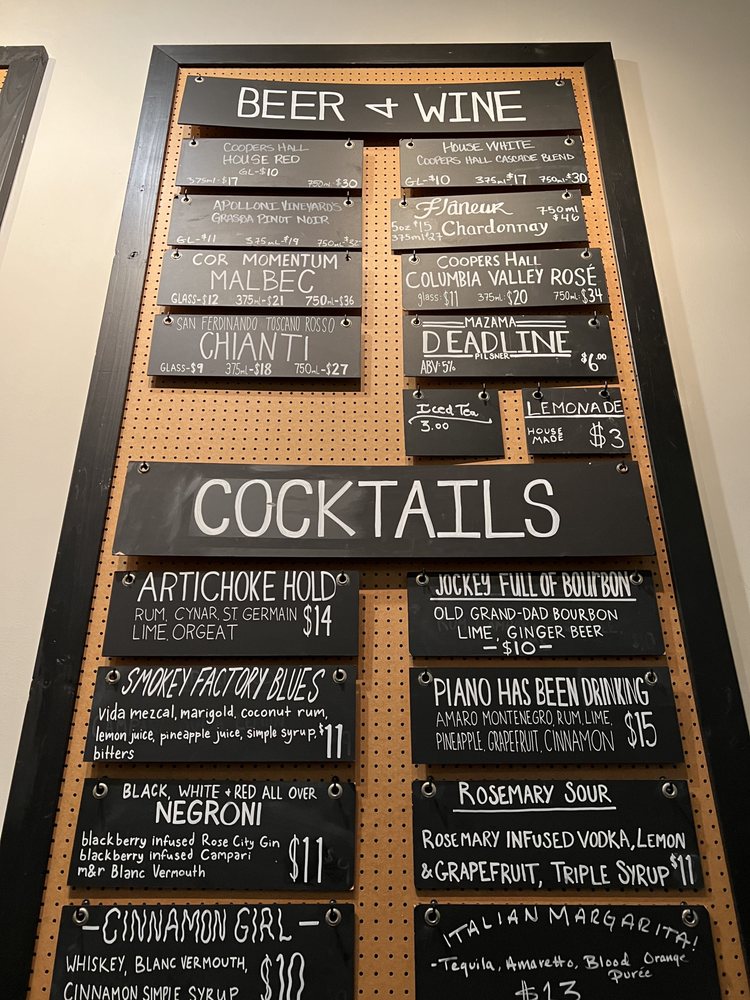 BEER & WINE
COOPERS HALL
HOUSE RED
GL-$10
375ml-$17 750ml-$30
HOUSE WHITE
COOPERS HALL CASCADE BLEND
GL-$10 375ml-$17 750ml-$30
APOLLONI VINEYARDS
GRASBA PINOT NOIR
GL-$11 375ml-$19
Flâneur 750ml
$46
5oz $15 Chardonnay
375ml $27
COR MOMENTUM
MALBEC
GLASS-$12 375ml-$21 750ml-$36
COOPERS HALL
COLUMBIA VALLEY ROSÉ
glass: $11 375ml: $20 750ml: $34
SAN FERDINANDO TOSCANO ROSSO
CHIANTI
GLASS-$9 375ml-$18 750ml-$27
MAZAMA
DEADLINE
PILSNER
ABV: 5% $6.00
Iced Tea
3.00
LEMONADE
HOUSE
MADE $3
COCKTAILS
ARTICHOKE HOLD
RUM, CYNAR, ST. GERMAIN
LIME, ORGEAT $14
JOCKEY FULL OF BOURBON
OLD GRAND-DAD BOURBON
LIME, GINGER BEER
-$10-
SMOKEY FACTORY BLUES
Vida mezcal, marigold, coconut rum,
lemon juice, pineapple juice, simple syrup,
bitters $11
PIANO HAS BEEN DRINKING
AMARO MONTENEGRO, RUM, LIME,
PINEAPPLE, GRAPEFRUIT, CINNAMON $15
BLACK, WHITE + RED ALL OVER
NEGRONI
blackberry infused Rose City Gin
blackberry infused Campari
m&r Blanc Vermouth $11
ROSEMARY SOUR
ROSEMARY INFUSED VODKA, LEMON
& GRAPEFRUIT, TRIPLE SYRUP $11
-CINNAMON GIRL-
WHISKEY, BLANC VERMOUTH,
CINNAMON SIMPLE SYRUP $10
ITALIAN MARGARITA!
-Tequila, Amaretto, Blood Orange
Purée
$13